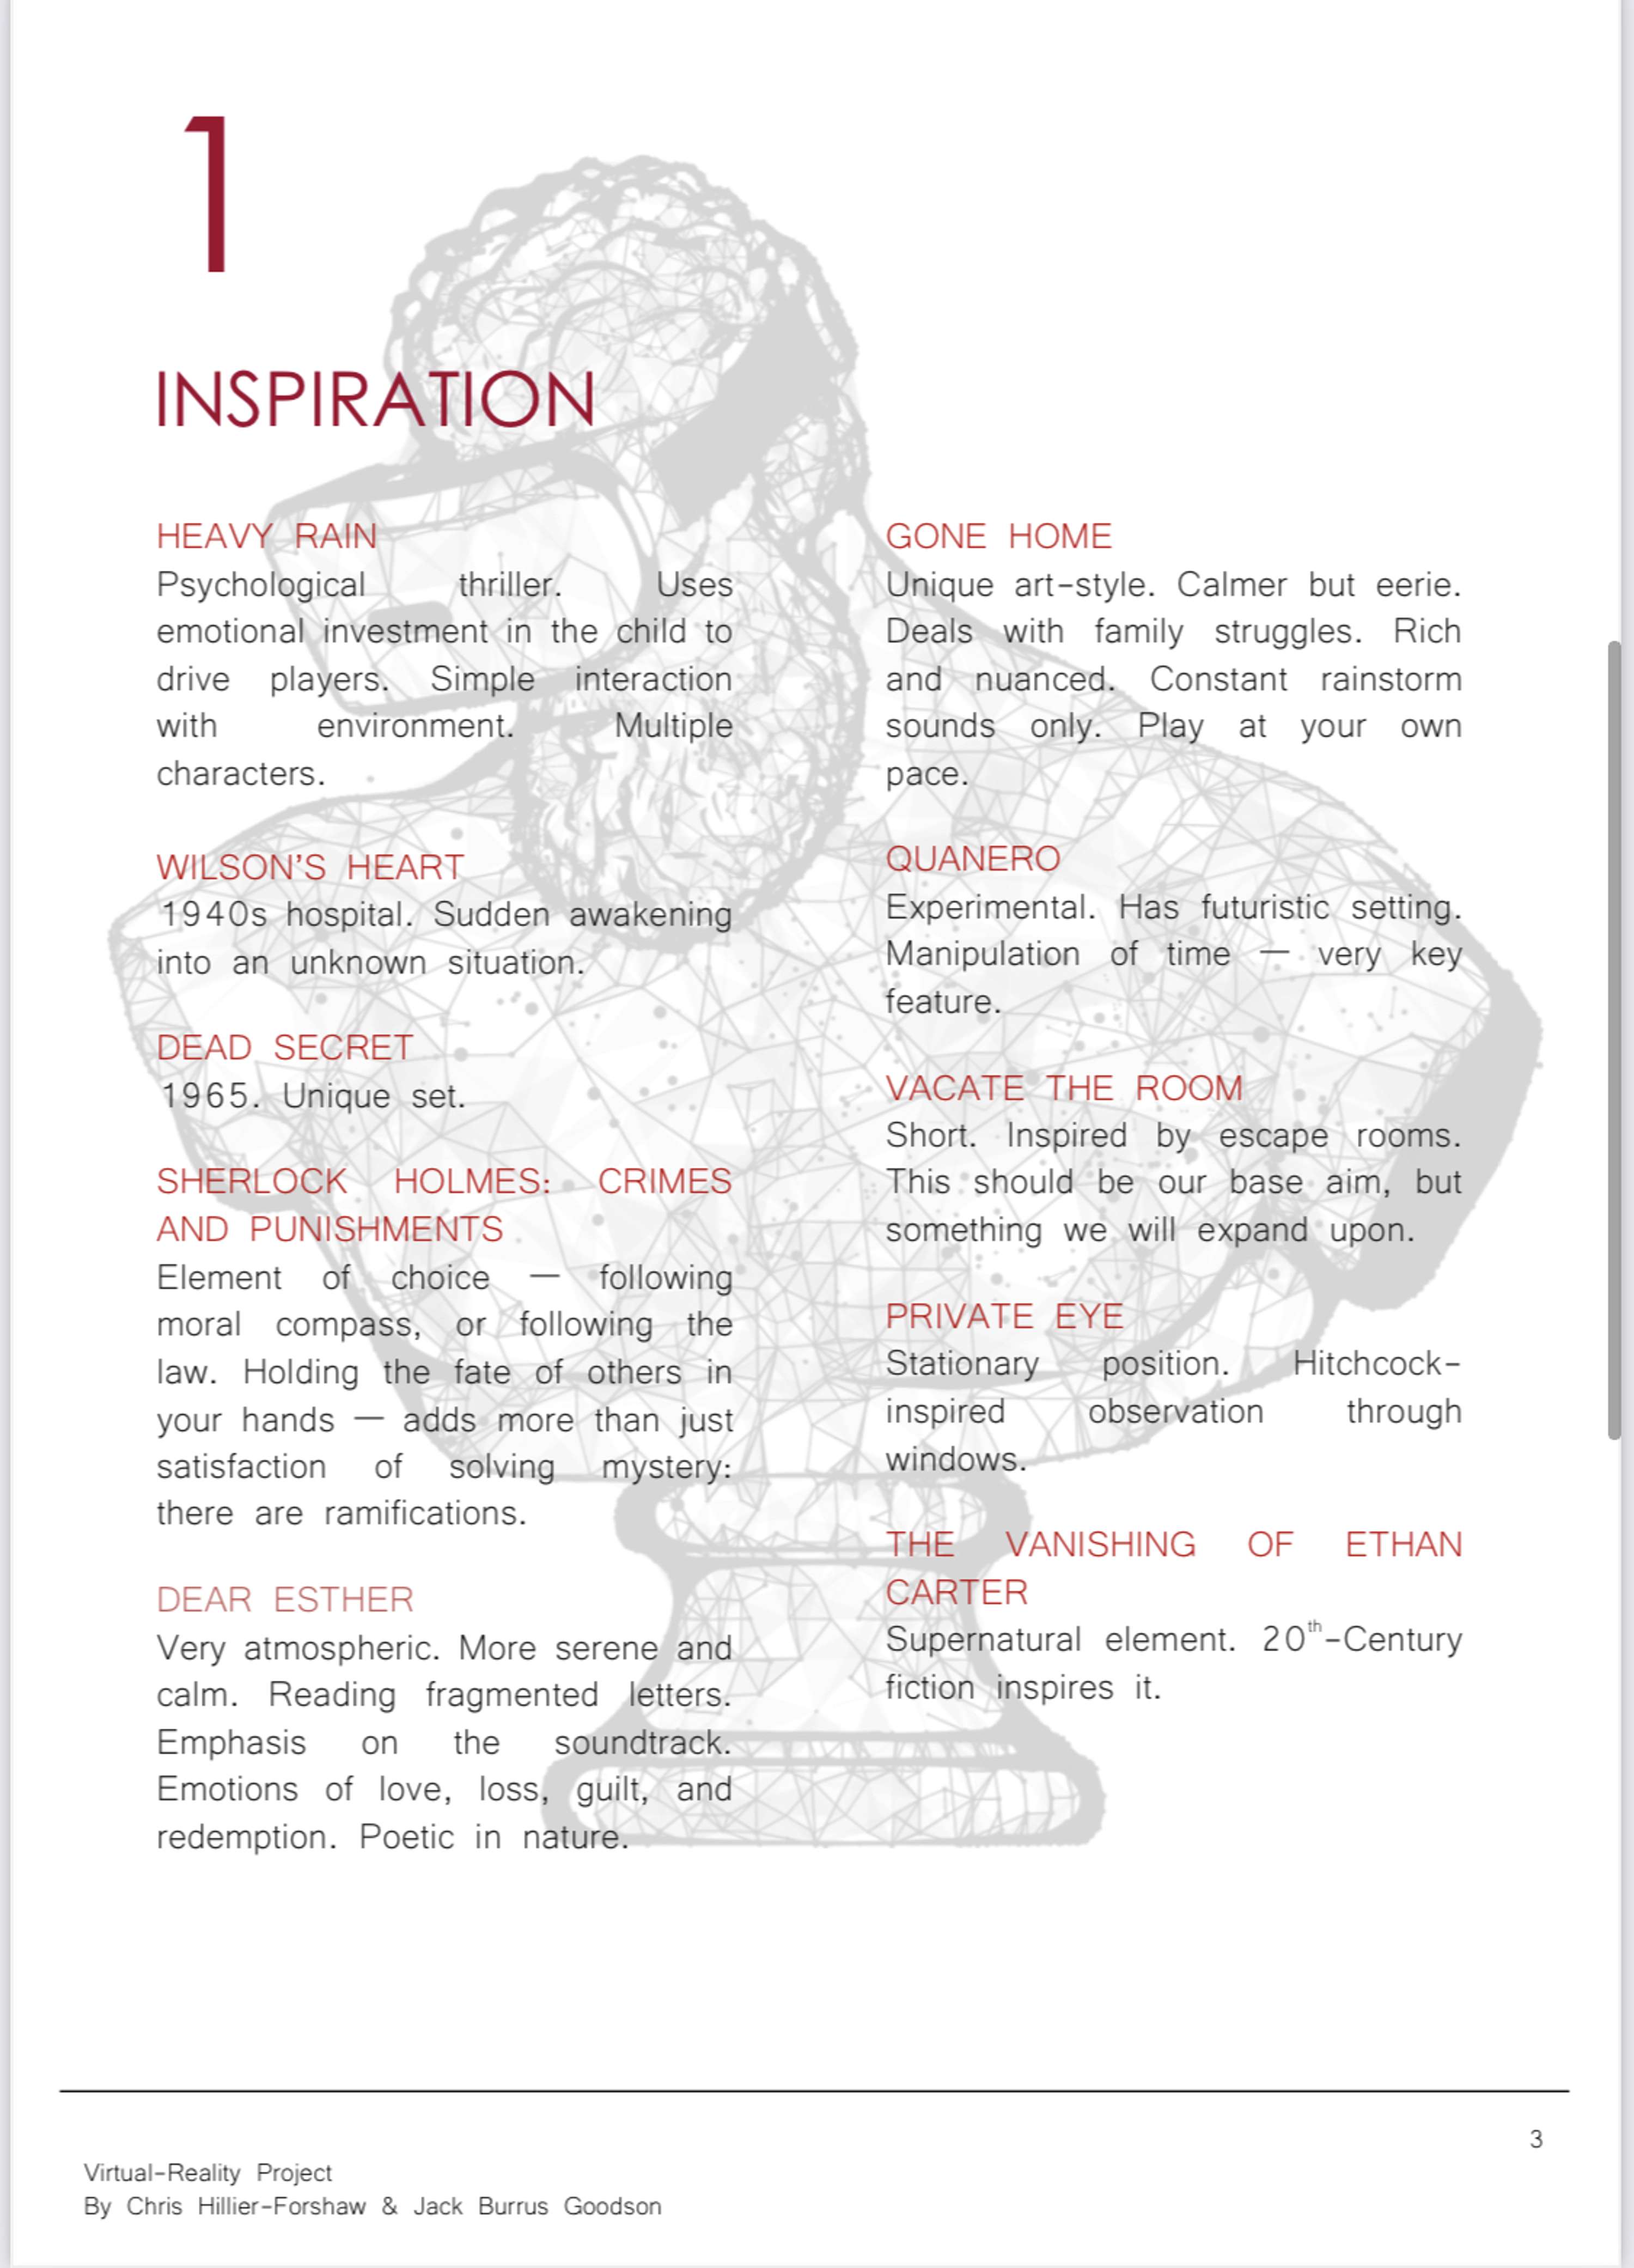 1
INSPIRATION
HEAVY RAIN
Psychological thriller. Uses
emotional investment in the child to
drive players. Simple interaction
with environment. Multiple
characters.
WILSON’S HEART
1940s hospital. Sudden awakening
into an unknown situation.
DEAD SECRET
1965. Unique set.
SHERLOCK HOLMES: CRIMES
AND PUNISHMENTS
Element of choice — following
moral compass, or following the
law. Holding the fate of others in
your hands — adds more than just
satisfaction of solving mystery:
there are ramifications.
DEAR ESTHER
Very atmospheric. More serene and
calm. Reading fragmented letters.
Emphasis on the soundtrack.
Emotions of love, loss, guilt, and
redemption. Poetic in nature.
GONE HOME
Unique art-style. Calmer but eerie.
Deals with family struggles. Rich
and nuanced. Constant rainstorm
sounds only. Play at your own
pace.
QUANERO
Experimental. Has futuristic setting.
Manipulation of time — very key
feature.
VACATE THE ROOM
Short. Inspired by escape rooms.
This should be our base aim, but
something we will expand upon.
PRIVATE EYE
Stationary position. Hitchcock-
inspired observation through
windows.
THE VANISHING OF ETHAN
CARTER
Supernatural element. 20th-Century
fiction inspires it.
3
Virtual-Reality Project
By Chris Hillier-Forshaw & Jack Burrus Goodson